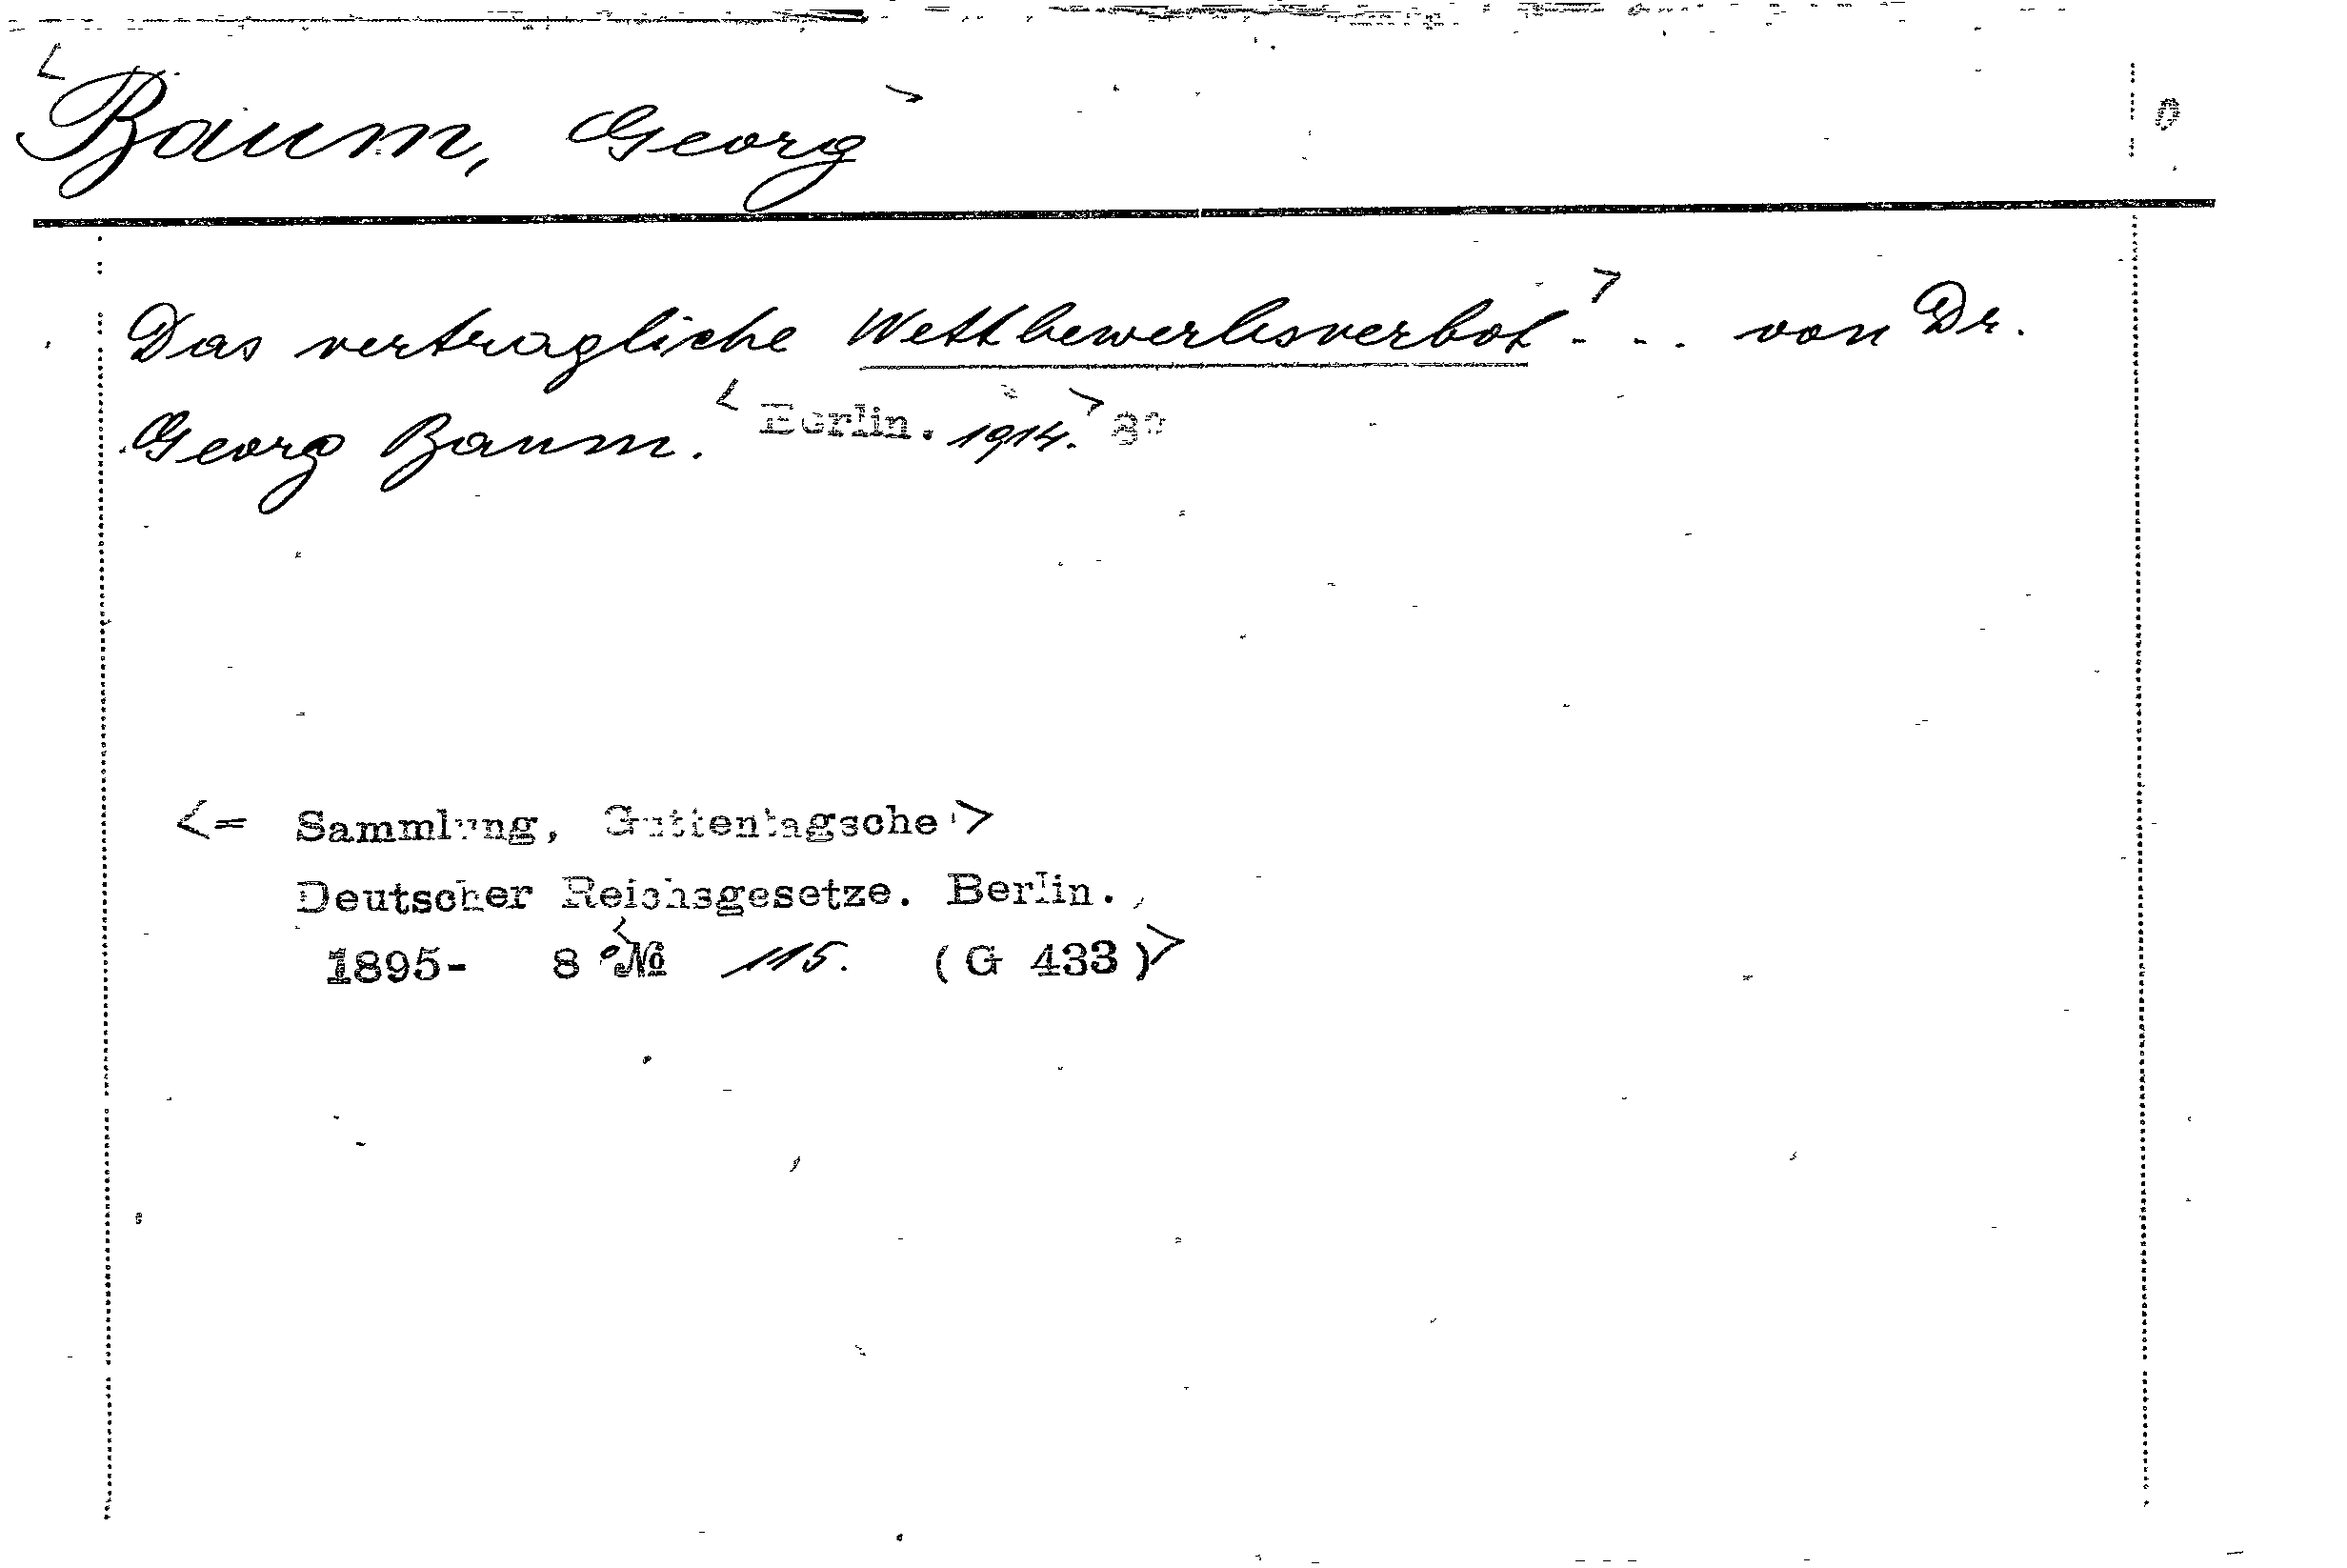 <Baum, Georg>
Das vertragliche Wettbewerbsverbot> . . . von Dr.
Georg Baum. <Berlin. 1914.> 8°
<= Sammlung, Guttentagsche>
Deutscher Reichsgesetze. Berlin.
1895- 8° <№ 115. (G 433)>